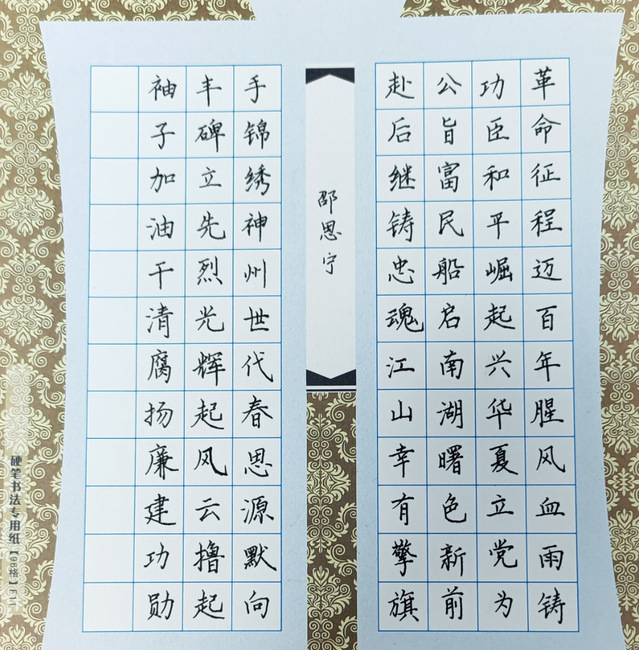 革命征程迈百年腥风血雨铸
功臣和平崛起兴华夏立党为
公旨富民船启南湖曙色新前
赴后继铸忠魂江山幸有擎旗
邵思宁
手锦绣神州世代春思源默向
丰碑立先烈光辉起风云撸起
袖子加油干清腐扬廉建功勋
硬笔书法专用纸【96格】